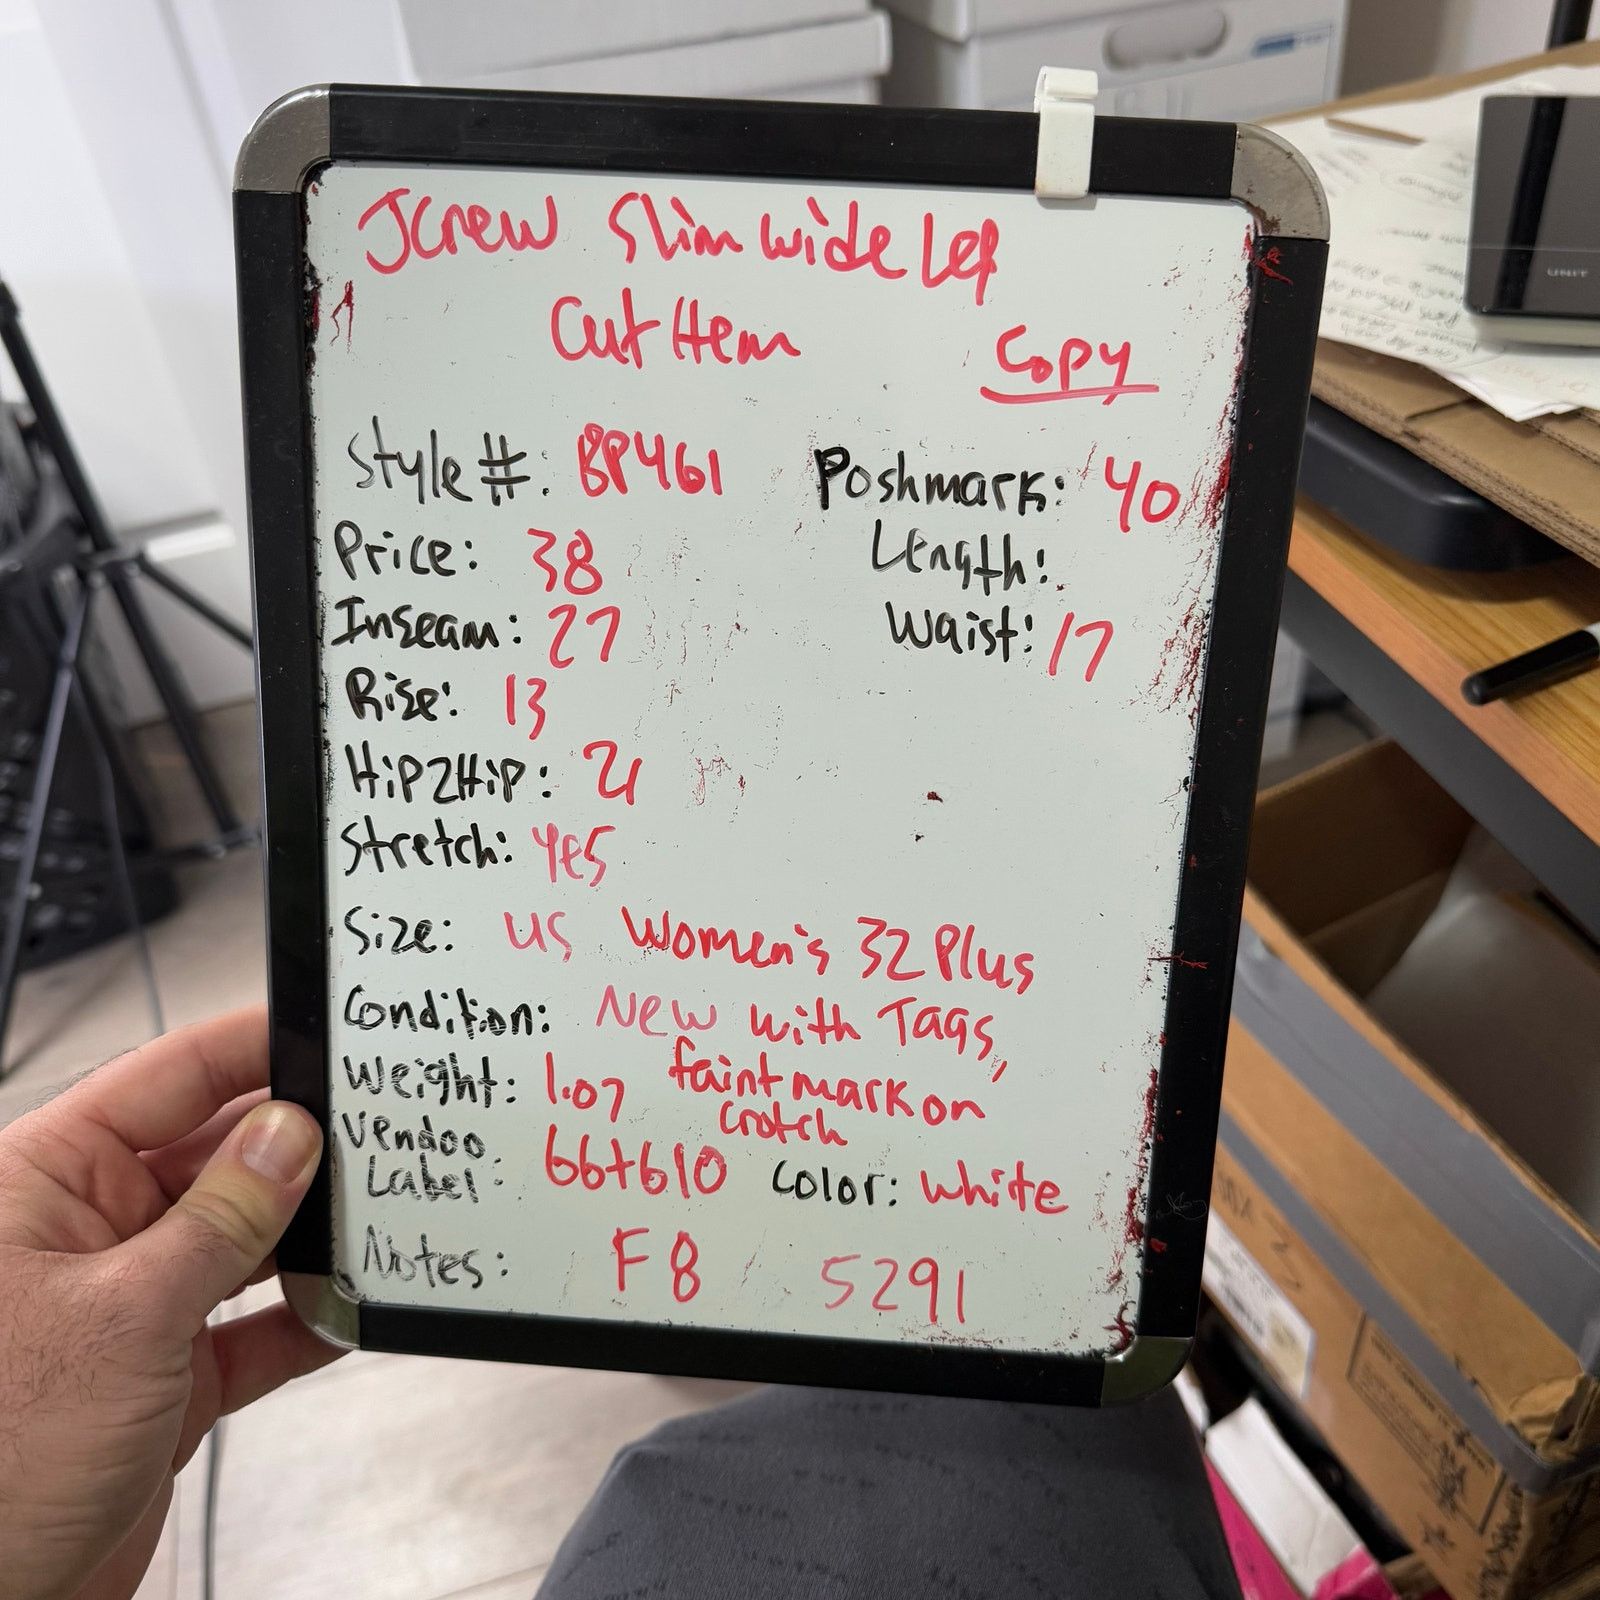 Jcrew Slim wide Leg
Cut Hem
Copy
Style #: BP461
Poshmark: 40
Price: 38
Length:
Inseam: 27
Waist: 17
Rise: 13
Hip2Hip: 21
Stretch: yes
Size: US Women's 32 Plus
Condition: New with Tags,
faint mark on
crotch
Weight: 1.07
Vendoo
Label: 66+610
Color: white
Notes: F8 5291
UNIT